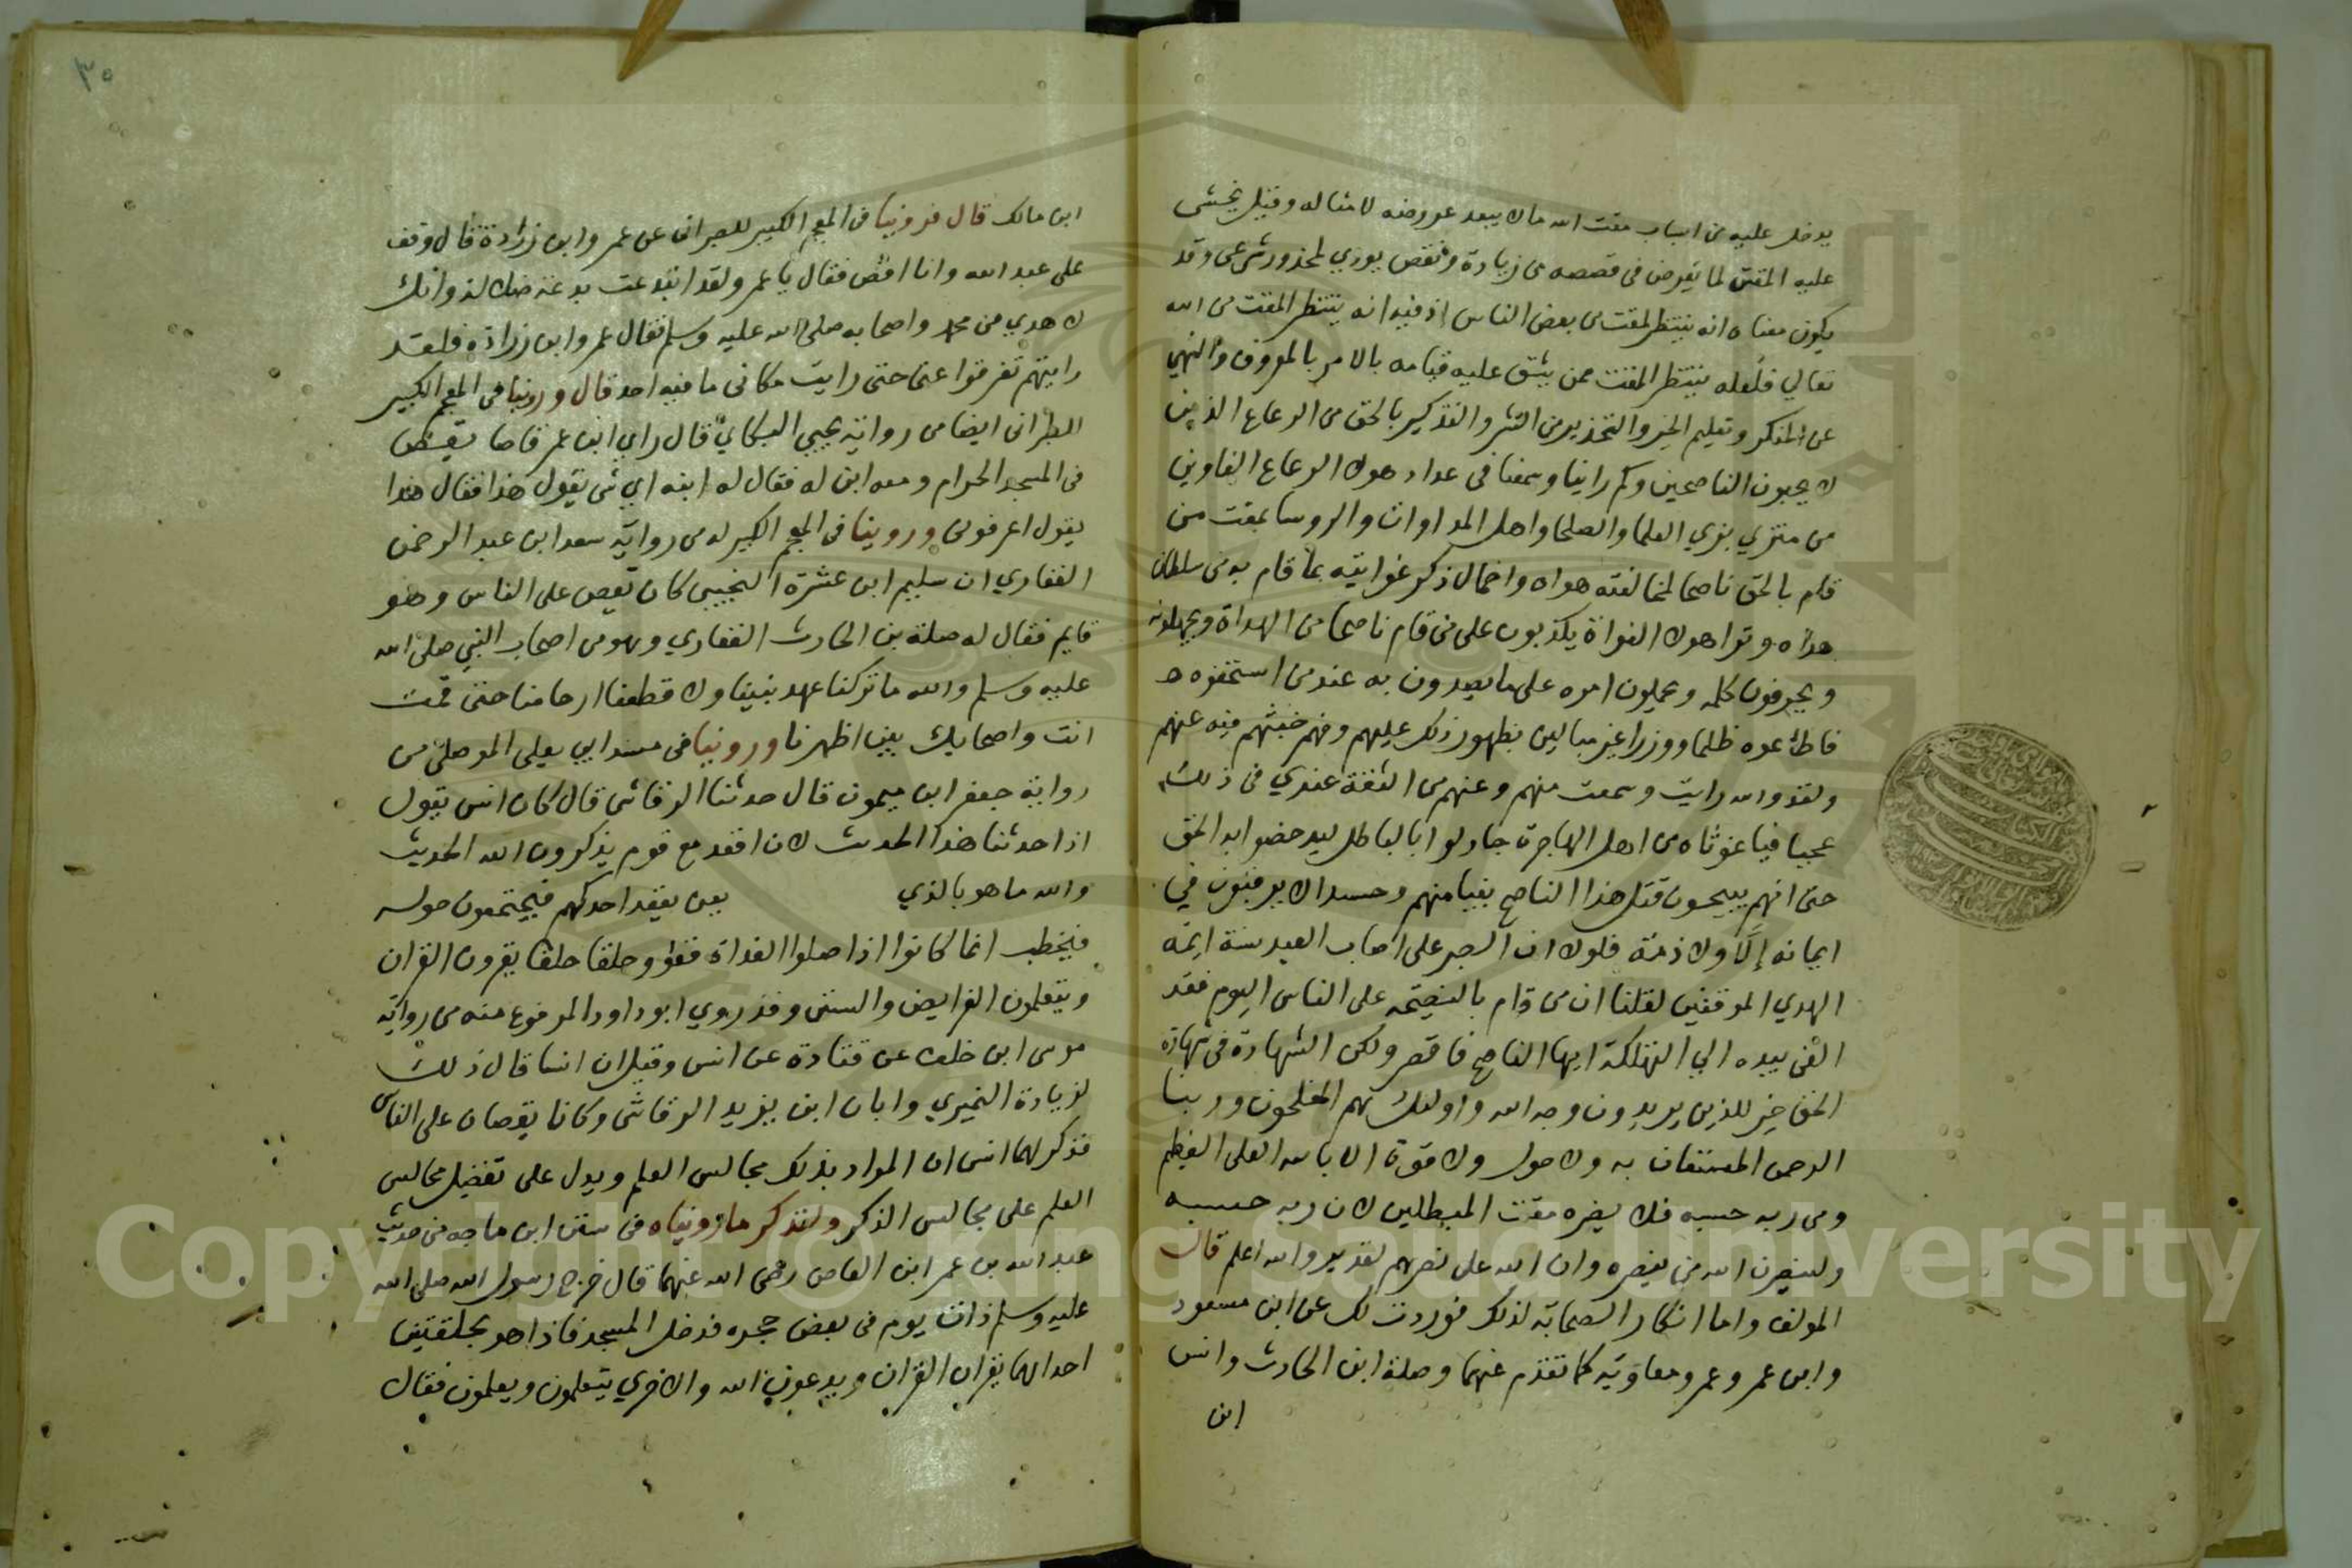 يدخل عليه من اسباب مقت الله مالا يبعد عروضه لامثاله وقيل يخشى
عليه المقت لما يعرض فى قصصه من زيادة ونقص يودي لمحذور شرعى وقد
يكون معناه انه ينتظر لمقت من بعض الناس اذ فيه انه ينتظر المقت من الله
تعالي فلعله ينتظر المقت ممن يشق عليه قيامه بالامر بالمعروف والنهي
عن المنكر وتعليم الخير والتحذير من الشر والتذكير بالحق من الرعاع الذين
لا يحبون الناصحين وكم راينا وسمعنا فى عداد هولا الرعاع الغاوين
من متزي بزي العلما والصلحا واهل المداوات والروسا بمقت من
قام بالحق ناصحا لمخالفته هواه واخمال ذكر غوايته بما قام به من سلطان
هداه وتوا هولا الغواة يكذبون على من قام ناصحا من الهداة ويجهلونه
ويحرفون كلمه ويحملون امره على ما يصدون به عند من استخفوه
فاطاعوه ظلما ووزرا غير مبالين بظهور ذلك عليهم وفهم خبثهم فيه عنهم
ولقد والله رايت وسمعت منهم وعنهم من الثقة عندي فى ذلك
عجبا فيا غوثاه من اهل الهاجرة جادلوا بالباطل ليدحضوا به الحق
حتى انهم يبيحون قتل هذا الناصح بغيا منهم وحسدا لا يرقبون في
ايمانه إلاًّ ولا ذمة فلولا ان الصبر على اصاب العبد سنة ايمه
الهدي الموقنين لقلنا ان من قام بالنصيحه على الناس اليوم فقد
القى بيده الي التهلكة ايها الناصح فاقصر ولكن الشهادة فى شهادة
الحق خير للذين يريدون وجه الله واولئك هم المفلحون وربنا
الرحمن المستعان به ولا حول ولا قوة الا بالله العلى العظيم
ومن ربه حسبه فلا يضره مقت المبطلين لان ربه حسبه
ولينصرن الله من ينصره وان الله على نصرهم لقدير والله اعلم قال
المولف واما انكار الصحابة لذلك فوردت لك عن ابن مسعود
وابن عمر وعمر ومعاوية كما تقدم عنهما وصلة ابن الحارث وانس
ابن
٣٥
ابن مالك قال فروينا فى المعجم الكبير للطبرانى عن عمر وابن زرادة قال وقف
على عبد الله وانا اقص فقال يا عمر ولقد ابتدعت بدعة ضلالة او انك
لاهدي من محمد واصحابه صلى الله عليه وسلم فقال عمر وابن زرادة فلقد
رايتهم تفرقوا عنى حتى رايت مكانى ما فيه احد قال وروينا فى المعجم الكبير
الطبرانى ايضا من رواية يحيي البكاي قال راي ابن عمر قاصا يقص
فى المسجد الحرام ومعه ابن له فقال له ابنه اي شى يقول هذا فقال هذا
يقول اعرفونى وروينا فى المعجم الكبير له من رواية سعد ابن عبد الرحمن
الغفاري ان سليم ابن عشرة التجيبى كان يقص على الناس وهو
قايم فقال له صلة بن الحارث الغفاري وهو من اصحاب النبي صلى الله
عليه وسلم والله ما تركنا عهد نبينا ولا قطعنا ارحامنا حتى قمت
انت واصحابك بين اظهرنا وروينا فى مسند ابي يعلى الموصلى من
رواية جعفر ابن ميمون قال حدثنا الرقاشى قال كان انس يقول
اذا حدثنا هذا الحدث لان اقعد مع قوم يذكرون الله الحديث
والله ما هو بالذي يعنى يقعد احدكهم فيجتمعون حوله
فيخطب انما كانوا اذا صلوا الغداة قعدوا حلقا حلقا يقرون القران
ويتعلمون الفرايض والسنن وقد روي ابو داود المرفوع منه من رواية
موسى ابن خلف عن قتادة عن انس وقيل ان انسا قال ذلك
لزيادة النميري وابان ابن يزيد الرقاشى وكانا يقصان على الناس
فذكر لهما انس ان المراد بذلك مجالس العلم ويدل على تفضيل مجالس
العلم على مجالس الذكر ولنذكر ما رويناه فى سنن ابن ماجه من حديث
عبد الله بن عمر ابن العاص رضى الله عنهما قال خرج رسول الله صلى الله
عليه وسلم ذات يوم فى بعض حجره فدخل المسجد فاذا هو بحلقتين
احداهما يقران القران ويدعون الله والاخري يتعلمون ويعلمون فقال
Copyright © King Saud University